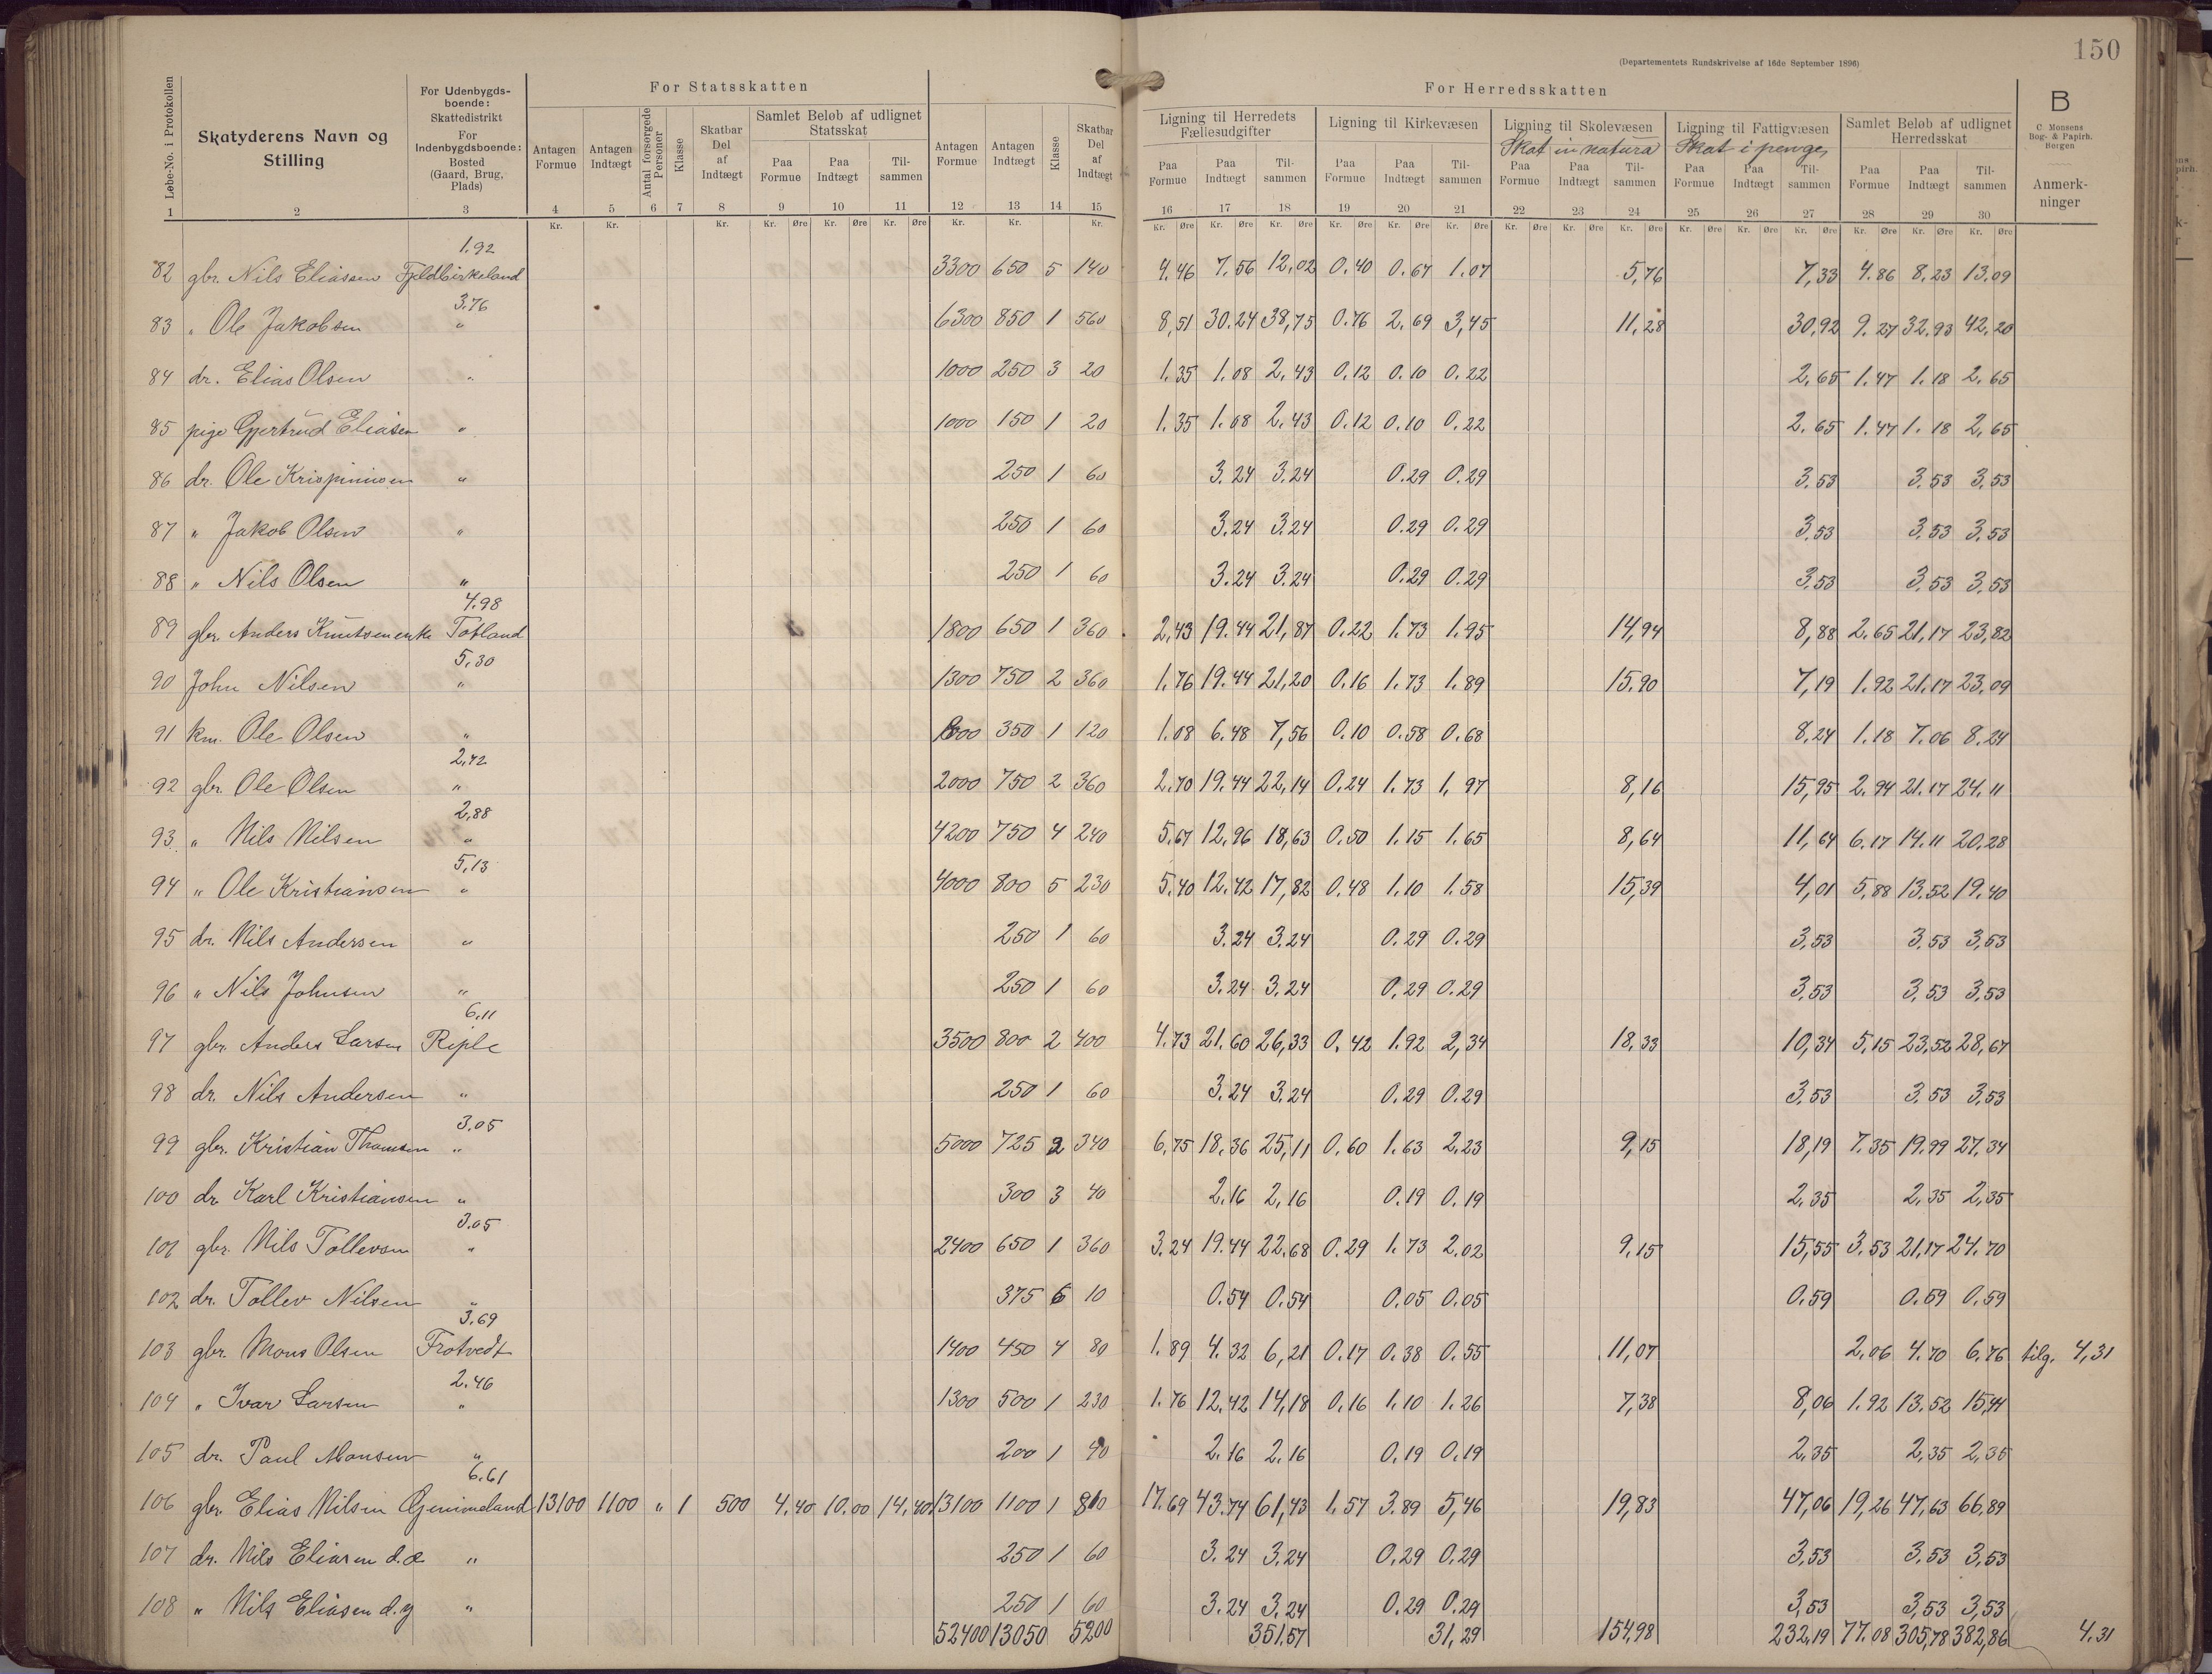 150
(Departementets Rundskrivelse af 16de September 1896)
For Statsskatten
For Herredsskatten
B
C. Monsens Bog- & Papirh. Bergen
Løbe-No. i Protokollen
Skatyderens Navn og Stilling
For Udenbygdsboende: Skattedistrikt
For Indenbygdsboende: Bosted (Gaard, Brug, Plads)
Antagen Formue
Antagen Indtægt
Antal forsørgede Personer
Klasse
Skatbar Del af Indtægt
Samlet Beløb af udlignet Statsskat
Paa Formue Paa Indtægt Tilsammen
Antagen Formue
Antagen Indtægt
Klasse
Skatbar Del af Indtægt
Ligning til Herredets Fællesudgifter
Paa Formue Paa Indtægt Tilsammen
Ligning til Kirkevæsen
Paa Formue Paa Indtægt Tilsammen
Ligning til Skolevæsen
Skat in natura
Paa Formue Paa Indtægt Tilsammen
Ligning til Fattigvæsen
Skat i penge
Paa Formue Paa Indtægt Tilsammen
Samlet Beløb af udlignet Herredsskat
Paa Formue Paa Indtægt Tilsammen
Anmerkninger
1 2 3 4 5 6 7 8 9 10 11 12 13 14 15 16 17 18 19 20 21 22 23 24 25 26 27 28 29 30
1.92
82 gbr. Nils Eliassen Fjeldbirkeland 3300 650 5 140 4.46 7.56 12.02 0.40 0.67 1.07 5,76 7,33 4.86 8.23 13.09
3.76
83 " Ole Jakobsen " 6300 850 1 560 8,51 30.24 38,75 0.76 2.69 3,45 11,28 30,92 9.27 32.93 42.20
84 dr. Elias Olsen " 1000 250 3 20 1.35 1.08 2,43 0.12 0.10 0.22 2,65 1.47 1.18 2.65
85 pige Gjertrud Eliasen " 1000 150 1 20 1.35 1.08 2.43 0.12 0.10 0.22 2.65 1.47 1.18 2,65
86 dr. Ole Krispinusen " 250 1 60 3.24 3.24 0.29 0.29 3.53 3.53 3.53
87 " Jakob Olsen " 250 1 60 3.24 3.24 0.29 0.29 3.53 3.53 3.53
88 " Nils Olsen " 250 1 60 3.24 3.24 0.29 0.29 3,53 3,53 3.53
4.98
89 gbr. Anders Knutsen enke Totland 1800 650 1 360 2,43 19.44 21,87 0.22 1.73 1.95 14,94 8,88 2.65 21,17 23,82
5,30
90 John Nilsen " 1300 750 2 360 1.76 19.44 21,20 0.16 1.73 1.89 15.90 7,19 1.92 21.17 23.09
91 km. Ole Olsen " 800 350 1 120 1.08 6.48 7,56 0.10 0.58 0.68 8.24 1.18 7.06 8.24
2,72
92 gbr. Ole Olsen " 2000 750 2 360 2.70 19.44 22,14 0.24 1.73 1,97 8,16 15,95 2.94 21.17 24.11
2,88
93 " Nils Nilsen " 4200 750 4 240 5.67 12.96 18,63 0.50 1.15 1.65 8,64 11,64 6.17 14.11 20.28
5,13
94 " Ole Kristiansen " 4000 800 5 230 5.40 12.42 17,82 0.48 1.10 1.58 15,39 4,01 5,88 13.52 19.40
95 dr. Nils Andersen " 250 1 60 3.24 3.24 0.29 0.29 3,53 3,53 3,53
96 " Nils Johnsen " 250 1 60 3.24 3.24 0.29 0.29 3,53 3,53 3,53
6,11
97 gbr. Anders Larsen Riple 3500 800 2 400 4.73 21.60 26,33 0.42 1.92 2,34 18,33 10,34 5,15 23,52 28,67
98 dr. Nils Andersen " 250 1 60 3.24 3.24 0.29 0.29 3,53 3.53 3,53
3.05
99 gbr. Kristian Thomsen " 5000 725 2 340 6,75 18,36 25,11 0.60 1.63 2,23 9,15 18,19 7.35 19.99 27.34
100 dr. Karl Kristiansen " 300 3 40 2.16 2,16 0.19 0.19 2,35 2,35 2,35
3.05
101 gbr. Nils Tollevsen " 2400 650 1 360 3.24 19.44 22.68 0.29 1.73 2,02 9,15 15,55 3.53 21,17 24.70
102 dr. Tollev Nilsen " 375 6 10 0.54 0.54 0.05 0.05 0.59 0.59 0.59
3.69
103 gbr. Mons Olsen Frotvedt 1400 450 4 80 1.89 4.32 6,21 0.17 0.38 0.55 11,07 2.06 4.70 6.76 tilg. 4,31
2.46
104 " Ivar Larsen " 1300 500 1 230 1.76 12,42 14,18 0,16 1.10 1.26 7,38 8,06 1.92 13.52 15,44
105 dr. Paul Monsen " 200 1 40 2.16 2,16 0.19 0.19 2,35 2,35 2,35
6.61
106 gbr. Elias Nilsen Gjenineland 13100 1100 " 1 500 4.40 10.00 14.40 13100 1100 1 810 17.69 43.74 61,43 1.57 3.89 5,46 19,83 47,06 19,26 47,63 66.89
107 dr. Nils Eliasen d.æ " 250 1 60 3.24 3.24 0.29 0.29 3,53 3,53 3,53
108 " Nils Eliasen d.y " 250 1 60 3.24 3.24 0.29 0.29 3,53 3,53 3,53
52400 13050 5200 351,57 31,29 154,98 232,19 77.08 305,78 382,86 4.31